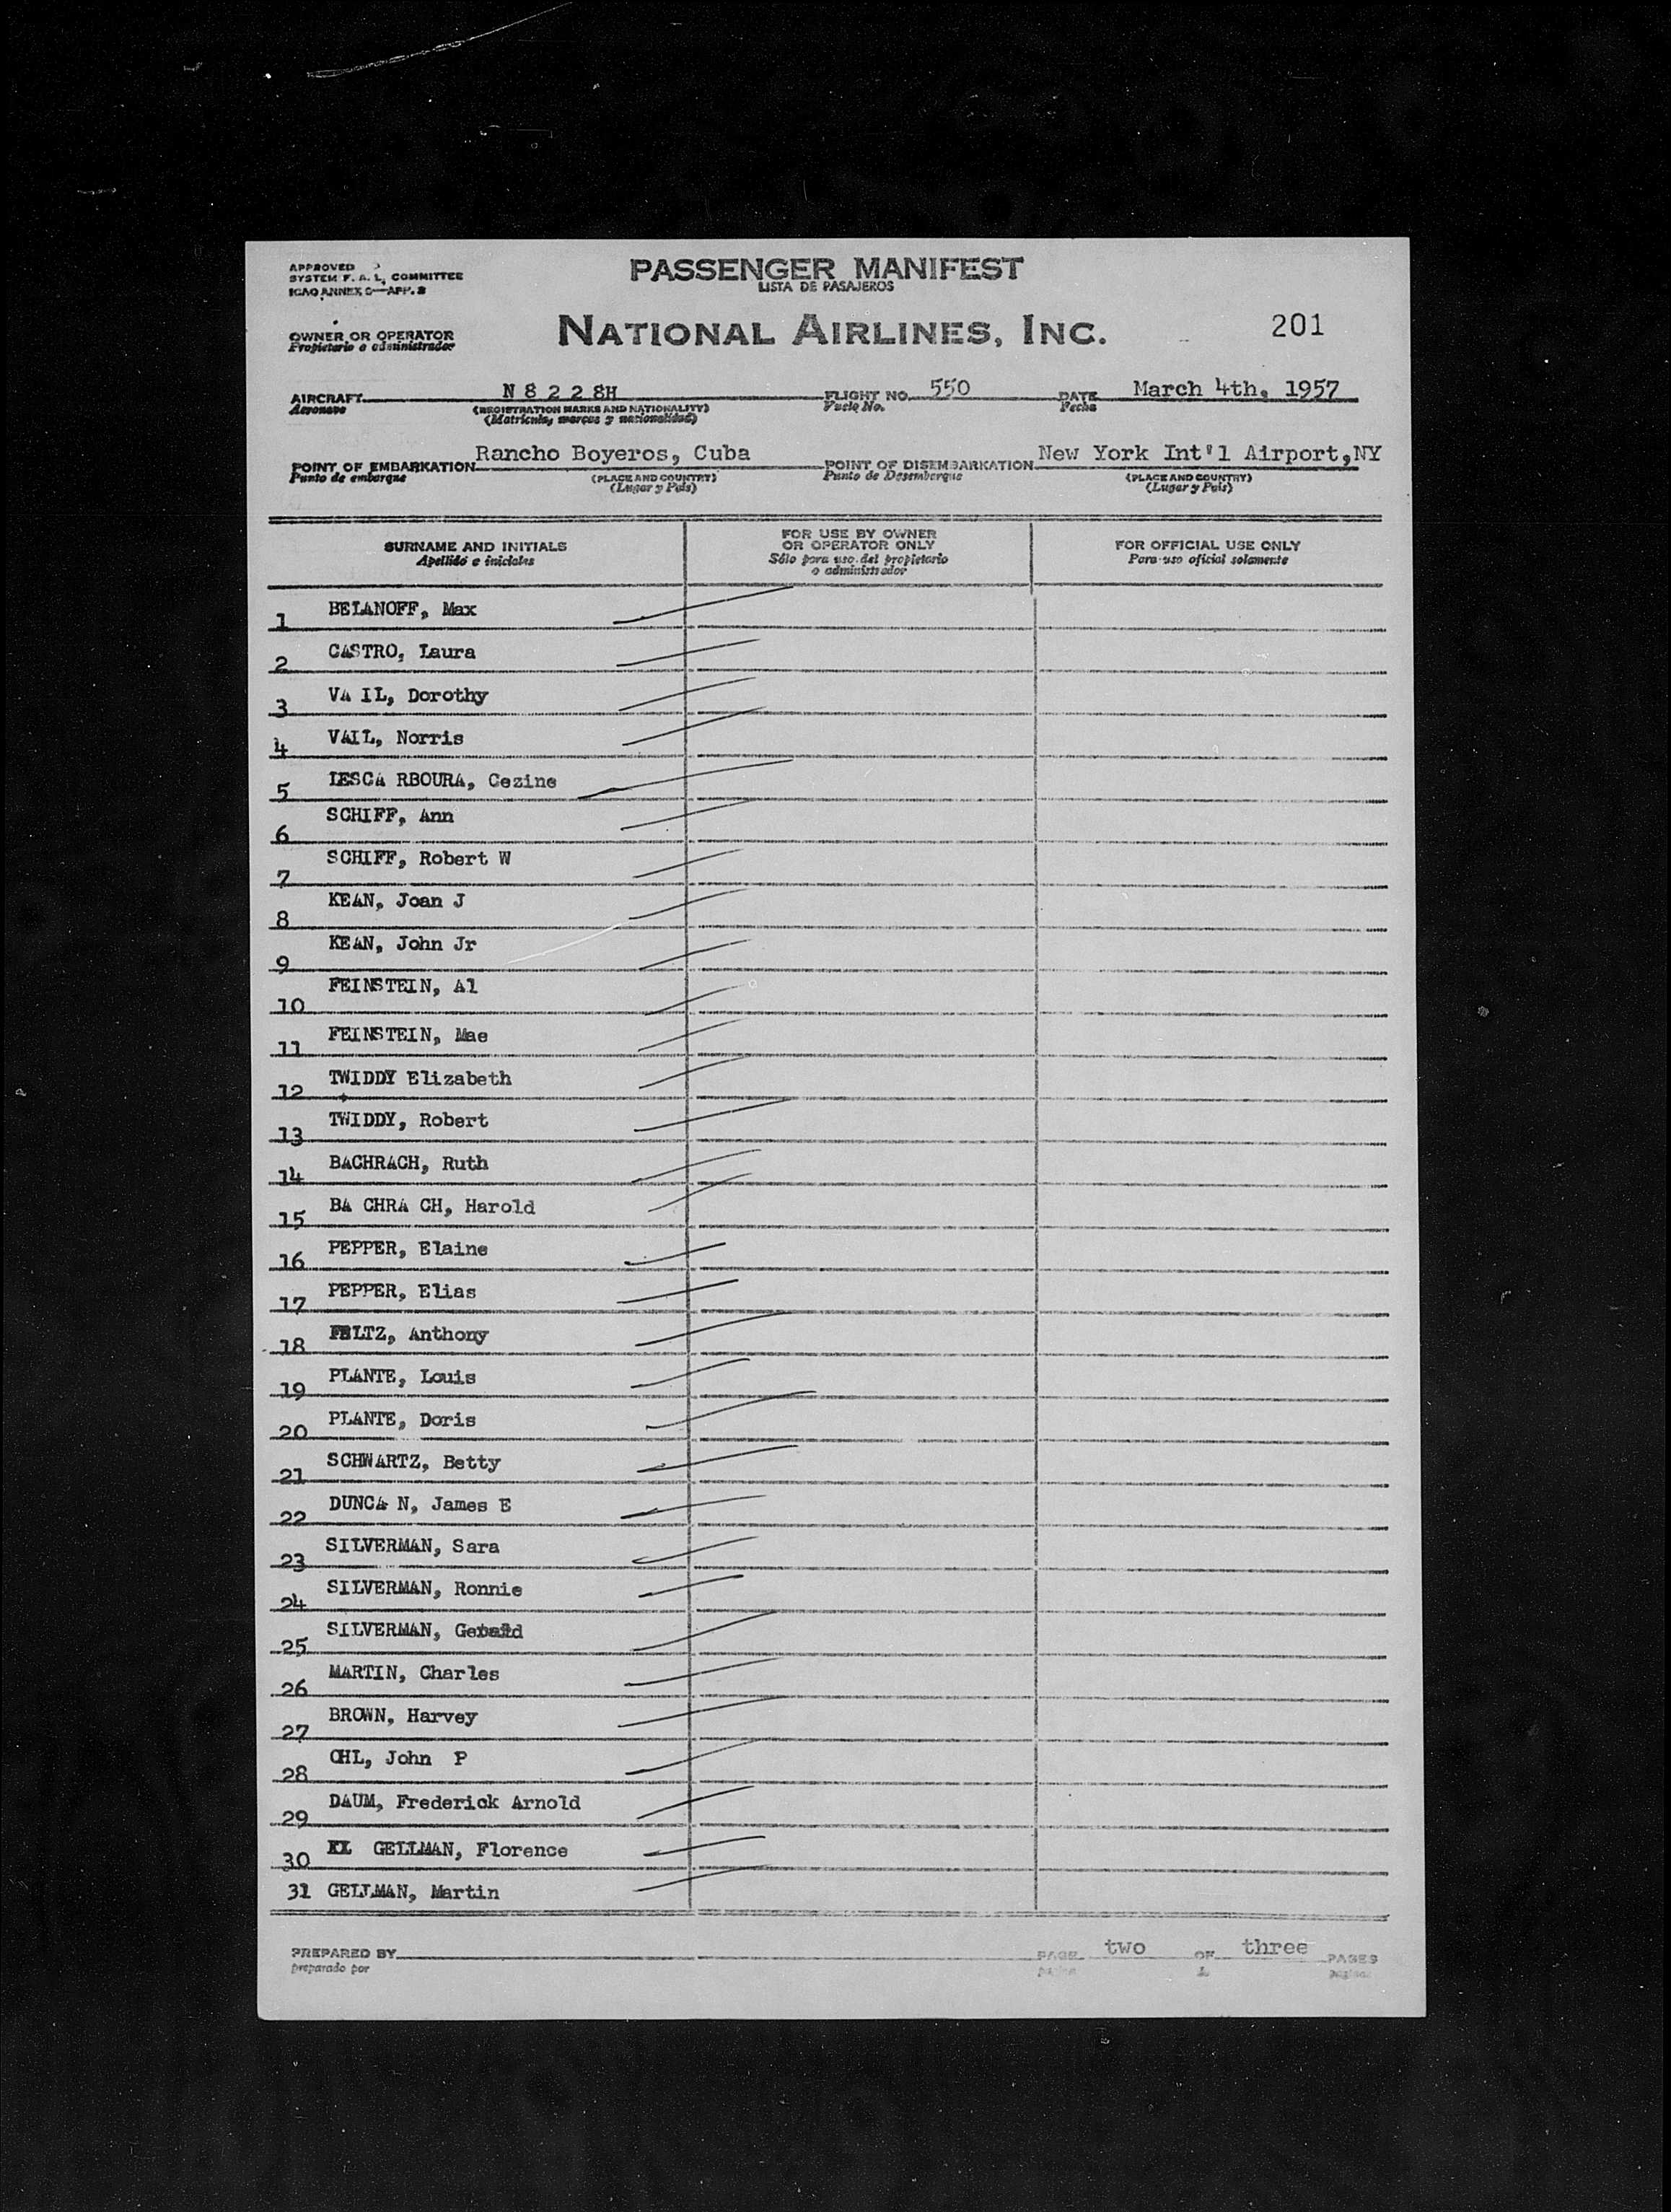 APPROVED
SYSTEM F. A. L. COMMITTEE
ICAO ANNEX 9—APP. 3
PASSENGER MANIFEST
LISTA DE PASAJEROS
OWNER OR OPERATOR
Propietario o administrador
NATIONAL AIRLINES, INC.
201
AIRCRAFT N 8 2 2 8H FLIGHT NO. 550 DATE March 4th, 1957
Aeronave (REGISTRATION MARKS AND NATIONALITY) Vuelo No. Fecha
(Matricula, marcas y nacionalidad)
POINT OF EMBARKATION Rancho Boyeros, Cuba POINT OF DISEMBARKATION New York Int'l Airport,NY
Punto de embarque (PLACE AND COUNTRY) Punto de Desembarque (PLACE AND COUNTRY)
(Lugar y Pais) (Lugar y Pais)
SURNAME AND INITIALS
Apellido e iniciales
FOR USE BY OWNER
OR OPERATOR ONLY
Sólo para uso del propietario
o administrador
FOR OFFICIAL USE ONLY
Para uso oficial solamente
1 BELANOFF, Max
2 CASTRO, Laura
3 VA IL, Dorothy
4 VAIL, Norris
5 LESCA RBOURA, Cezine
6 SCHIFF, Ann
7 SCHIFF, Robert W
8 KEAN, Joan J
9 KEAN, John Jr
10 FEINSTEIN, Al
11 FEINSTEIN, Mae
12 TWIDDY Elizabeth
13 TWIDDY, Robert
14 BACHRACH, Ruth
15 BA CHRA CH, Harold
16 PEPPER, Elaine
17 PEPPER, Elias
18 FELTZ, Anthony
19 PLANTE, Louis
20 PLANTE, Doris
21 SCHWARTZ, Betty
22 DUNCA N, James E
23 SILVERMAN, Sara
24 SILVERMAN, Ronnie
25 SILVERMAN,
26 MARTIN, Charles
27 BROWN, Harvey
28 OHL, John P
29 DAUM, Frederick Arnold
30 GELLMAN, Florence
31 GELLMAN, Martin
PREPARED BY PAGE two OF three PAGES
preparado por